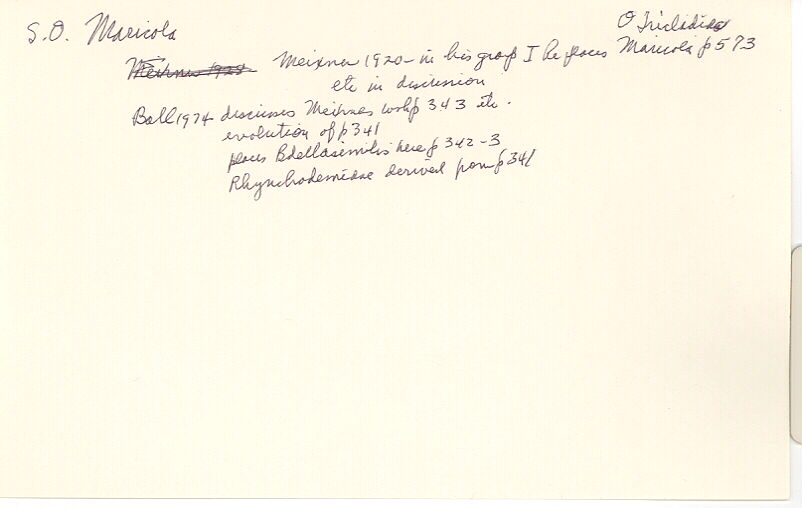 S.O. Maricola
O Tricladida
Meixner 1928 Meixner 1920 - in his group I he places Maricola p 573
etc in discussion
Ball 1974 discusses Meixners work p 343 etc.
evolution of p 341
places Bdellasimilis here p 342-3
Rhynchodemidae derived from p 341